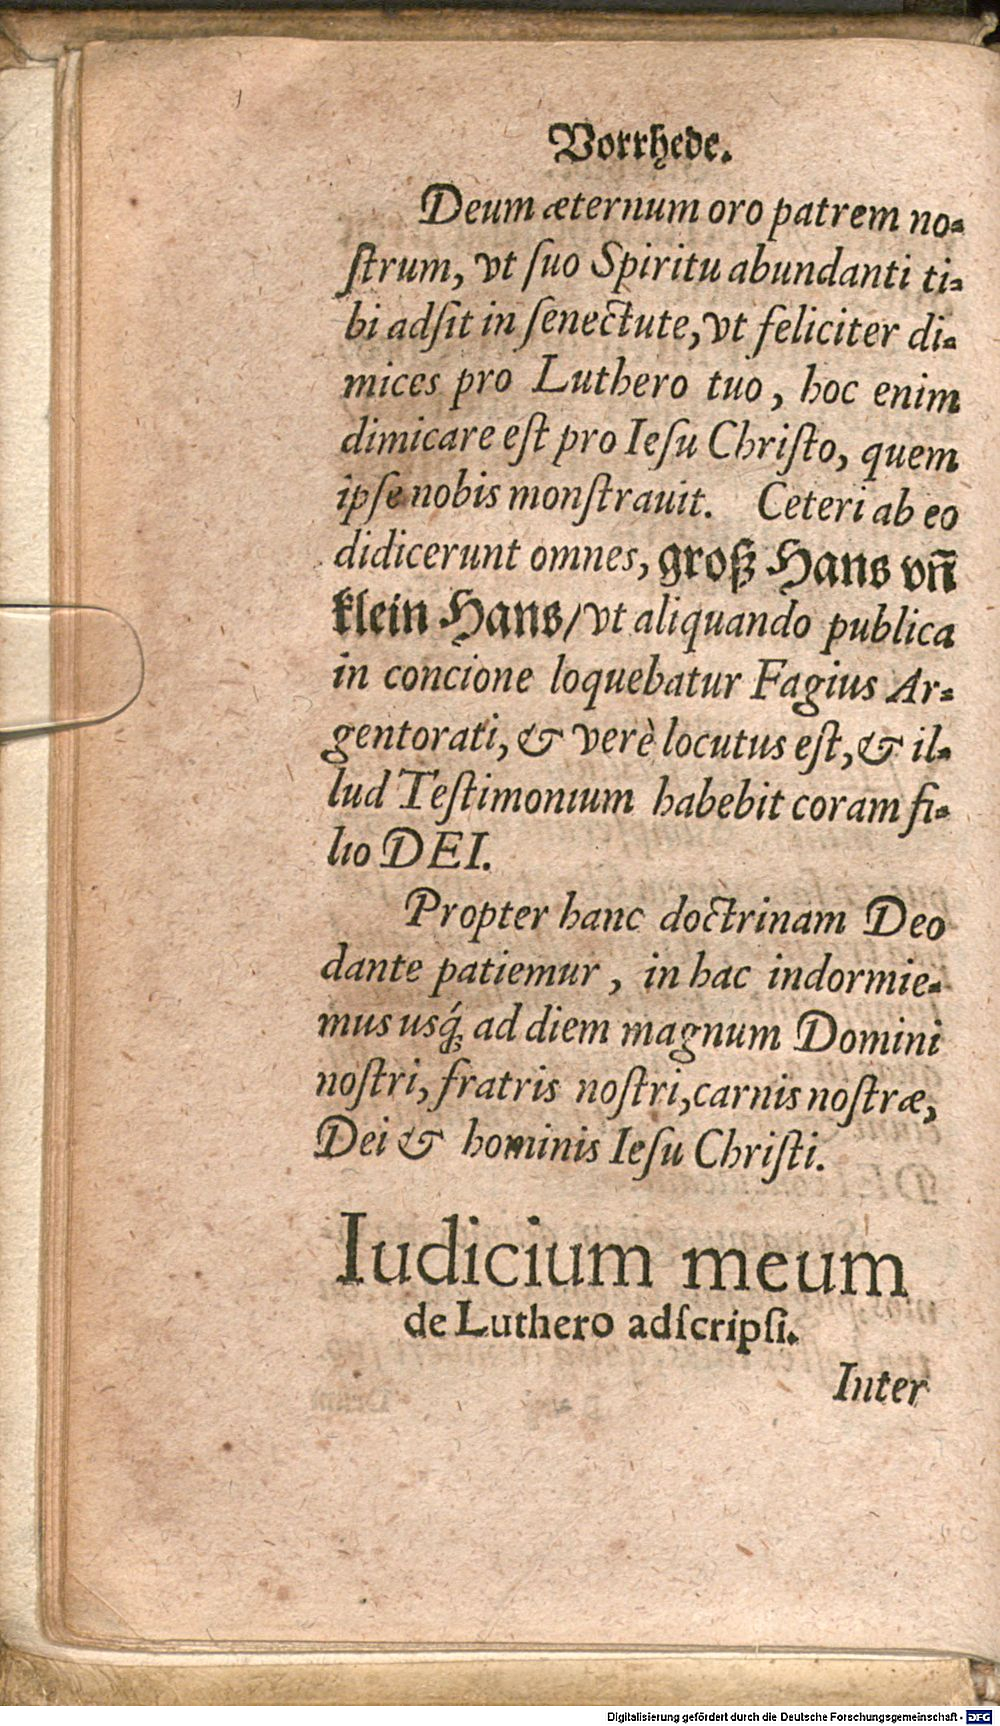 Vorrhede.
Deum æternum oro patrem no-
ſtrum, vt ſuo Spiritu abundanti ti-
bi adſit in ſenectute, vt feliciter di-
mices pro Luthero tuo, hoc enim
dimicare eſt pro Ieſu Chriſto, quem
ipſe nobis monſtrauit. Ceteri ab eo
didicerunt omnes, groß Hans vñ
klein Hans/ vt aliquando publica
in concione loquebatur Fagius Ar-
gentorati, & verè locutus eſt, & il-
lud Teſtimonium habebit coram fi-
lio DEI.
Propter hanc doctrinam Deo
dante patiemur, in hac indormie-
mus usq́ꝫ ad diem magnum Domini
noſtri, fratris noſtri, carnis noſtræ,
Dei & hominis Ieſu Chriſti.
Iudicium meum
de Luthero adſcripſi.
Inter
Digitalisierung gefördert durch die Deutsche Forschungsgemeinschaft - DFG